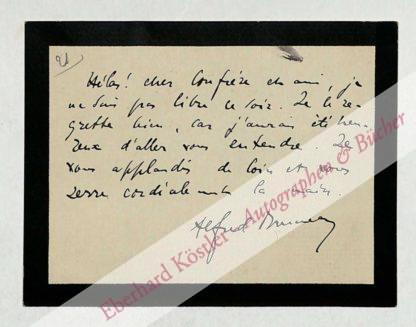 21
Hélas! cher confrère et ami, je
ne suis pas libre ce soir. Je le re-
grette bien, car j'aurais été heu-
reux d'aller vous entendre. Je
vous applaudis de loin et vous
serre cordialement la main.
Alfred Bruneau
Eberhard Köstler · Autographen & Bücher